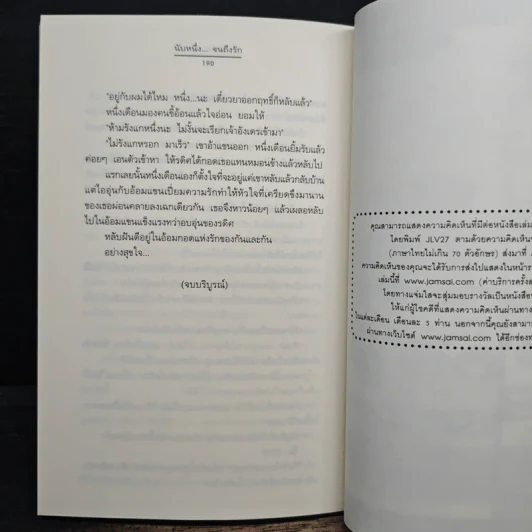 นับหนึ่ง... จนถึงรัก
190
"อยู่กับผมได้ไหม หนึ่ง...นะ เดี๋ยวยาออกฤทธิ์ก็หลับแล้ว"
หนึ่งเดือนมองคนขี้อ้อนแล้วใจอ่อน ยอมให้
"ห้ามรังแกหนึ่งนะ ไม่งั้นจะเรียกเจ้าอิงเดรเข้ามา"
"ไม่รังแกหรอก มาเร็ว" เขาอ้าแขนออก หนึ่งเดือนยิ้มรับแล้ว
ค่อยๆ เอนตัวเข้าหา ให้รดิศได้กอดเธอแทนหมอนข้างแล้วหลับไป
แรกเลยนั้นหนึ่งเดือนเองก็ตั้งใจที่จะอยู่แค่เขาหลับแล้วกลับบ้าน
แต่ไออุ่นกับอ้อมแขนเปี่ยมความรักทำให้หัวใจที่เครียดขึ้งมานาน
ของเธอผ่อนคลายลงเฉกเดียวกัน เธอจึงหาวน้อยๆ แล้วเผลอหลับ
ไปในอ้อมแขนแข็งแรงทว่าอบอุ่นของรดิศ
หลับฝันดีอยู่ในอ้อมกอดแห่งรักของกันและกัน
อย่างสุขใจ...
(จบบริบูรณ์)
คุณสามารถแสดงความคิดเห็นที่มีต่อหนังสือเล่ม
โดยพิมพ์ JLV27 ตามด้วยความคิดเห็น
(ภาษาไทยไม่เกิน 70 ตัวอักษร) ส่งมาที่
ความคิดเห็นของคุณจะได้รับการส่งไปแสดงในหน้าร
เล่มนี้ที่ www.jamsai.com (ค่าบริการครั้งล
โดยทางแจ่มใสจะสุ่มมอบรางวัลเป็นหนังสือ
ให้แก่ผู้โชคดีที่แสดงความคิดเห็นผ่านทาง
ในแต่ละเดือน เดือนละ 5 ท่าน นอกจากนี้คุณยังสามาร
ผ่านทางเว็บไซต์ www.jamsai.com ได้อีกช่องท